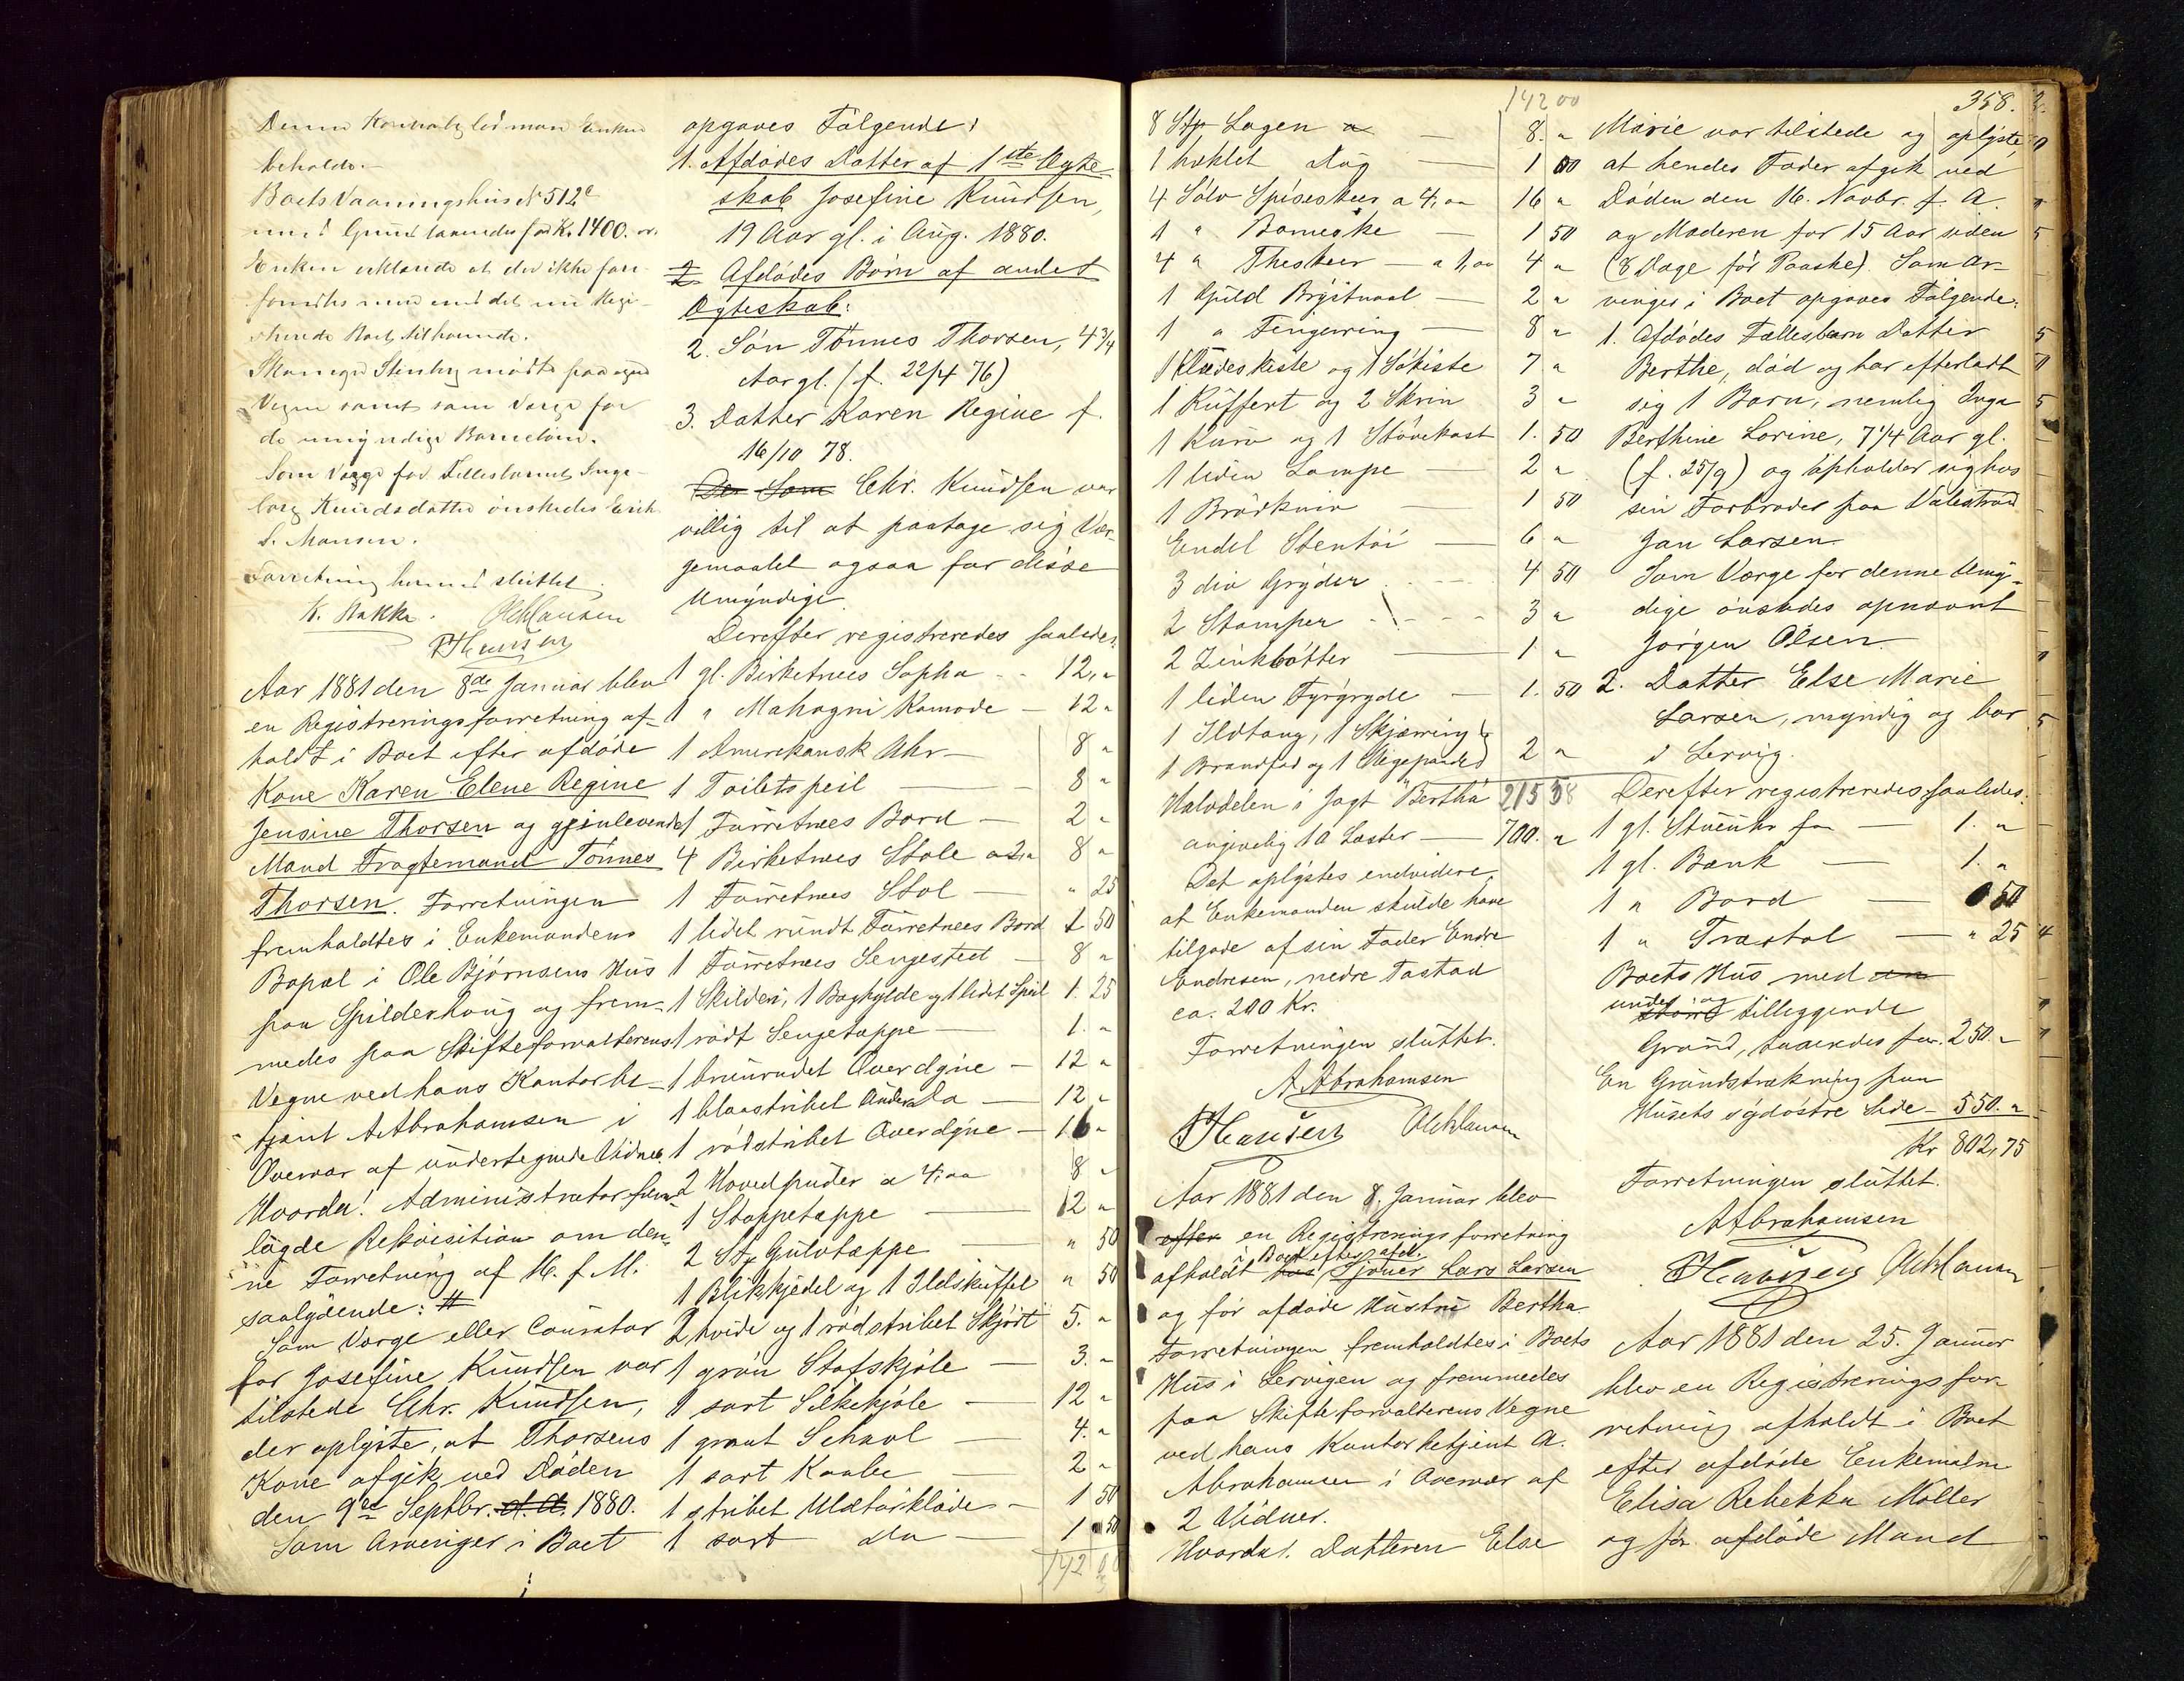 Denne Kontrakt lod man Enken
beholde.-
Boets Vaaningshus No 512c
med Grund taxeredes for Kr. 1400. "
Enken erklærede at der ikke fore-
fandtes mere end det nu Regi-
strerede Boet tilhørende.
mødte paa egne
Vegne samt som Værge for
de umyndige Barnebørn.
Som Værge for Fællesbarnet Inge-
borg Knudsdatter ønskedes Erik
S. Monsen.
Forretning hermed sluttet
K. Bakke. O Clausen
P Hansen
Aar 1881 den 8de Januar blev
en Registreringsforretning af-
holdt i Boet efter afdøde
Kone Karen Elene Regine
Jensine Thorsen og gjenlevende
Mand Fragtemand Tönnes
Thorsen. Forretningen
fremholdtes i Enkemandens
Bopæl i Ole Bjørnsens Hus
paa Spilderhoug og frem-
medes paa Skifteforvalterens
Vegne ved hans Kontorbe-
tjent A. Abrahamsen i
Overvær af undertegnede Vidner
Hvorda! Administrator frem-
lagde Rekvisition om den-
ne Forretning af H. f. M.
saalydende: #
Som Værge eller Courator
for Josefine Knudsen var
tilstede Chr. Knudsen,
der oplyste, at Thorsens
Kone afgik ved Døden
den 9de Septbr. d. A. 1880.
Som Arvinger i Boet
opgaves Følgende:
1. Afdødes Datter af 1ste Ægte
skab Josefine Knudsen,
19 Aar gl. i Aug. 1880.
2 Afdødes Børn af andet
Ægteskab:
2. Søn Tönnes Thorsen, 4 3/4
Aar gl. (f. 22/4 76)
3. Datter Karen Regine f.
16/10 78.
Der Som Chr. Knudsen var
villig til at paatage sig Vær-
gemaalet ogsaa for disse
Umyndige.
Derefter registreredes saaledes:
1 gl. Birketræes Sopha - - 12, "
1 " Mahogni Komode - 12 "
1 Amerikansk Uhr - 8 "
1 Toiletspeil - 8 "
1 Furretræes Bord - 2 "
4 Birketræes Stole a 2, " 8 "
1 Furretræes Stol - " 25
1 lidet rundt Furretræes Bord 1 50
1 Furretræes Sengested - 8 "
1 Skilderi, 1 Boghylde og 1 lidet Speil 1. 25
1 rødt Sengetæppe 1. "
1 brunrudet Overdyne - 12 "
1 blaastribet Underdo - 12 "
1 rødstribet Overdyne - 16 "
2 Hovedpuder a 4,00 8 "
1 Stoppetæppe - 12 "
2 St Gulvtæppe - " 50
1 Blikkjedel og 1 Ildskuffel " 50
2 hvide og 1 rødstribet Skjört 5. "
1 grøn Stofskjole - 3. "
1 sort Silkekjole - 12 "
1 graat Schavl - 4. "
1 sort Kaabe 2 "
1 stribet Uldtörklæde - 1 50
1 sort do - 1 50
142 00
142 00
8 Stp Lagen a - 8. "
1 hæklet Dug - 1 00
4 Sölv Spiseskeer a 4,00 16 "
1 " Barneske - 1 50
4 " Theskeer - a 1,00 4 "
1 Guld Brystnaal - 2 "
1 " Fingerring - 8 "
1 Klædeskiste og 1 Sökiste 7 "
1 Kuffert og 2 Skrin 3 "
1 Kurv og 1 Støvekost 1. 50
1 liden Lampe - 2 "
1 Brødkniv - 1 50
Endel Stentøi - 6 "
3 div Gryder - - - 4 50
2 Stamper - - - 3 "
2 Zinkbøtter - 1 "
1 liden Fyrgryde - 1. 50
1 Ildtang, 1 Skjærring &
1 Brandfad og 1 Stegepande 2 "
Halvdelen i Jagt "Bertha" 215 58
angivelig 10 Læster - 700. "
Det oplystes endvidere,
at Enkemanden skulde have
tilgode af sin Fader Endre
Endresen, nedre Tastad
ca. 200 Kr.
Forretningen sluttet.
A Abrahamsen
P Hansen O Clausen
Aar 1881 den 8. Januar blev
efter en Registreringsforretning
i Boet efter afd.
afholdt hos Sjouer Lars Larsen
og før afdøde Hustru Bertha
Forretningen fremholdtes i Boets
Hus i Lervigen og fremmedes
paa Skifteforvalterens Vegne
ved hans Kontorbetjent A.
Abrahamsen i Overvær af
2 Vidner.
Hvorda!. Datteren Else
358.
Marie var tilstede og oplyste
at hendes Fader afgik ved
Døden den 16. Novbr. f. A.
og Moderen for 15 Aar siden
(8 Dage før Paaske). Som Ar-
vinger i Boet opgaves Følgende:
1. Afdødes Fællesbarn Datter
Berthe, död og har efterladt
sig 1 Barn, nemlig Inga
Berthine Lorine, 7 1/4 Aar gl.
(f. 25/9) og opholder sig hos
sin Farbroder paa Valestrand
Jan Larsen.
Som Værge for denne Umyn-
dige ønskedes opnævnt
Jørgen Olsen.
2. Datter Else Marie
Larsen, myndig og bor
i Lervig.
Derefter registreredes saaledes:
1 gl. Stueuhr for - 1. "
1 gl. Bænk - 1. "
1 " Bord - " 50
1 " Træstol - " 25
Boets Hus med en
under og
tilleggende
Grund, taxeredes for. 250. "
En Grundstrækning paa
Husets sydøstre Side - 550. "
Kr 802,75
Forretningen sluttet.
A Abrahamsen
P Hansen O Clausen
Aar 1881 den 25. Januar
blev en Registreringsfor-
retning afholdt i Boet
efter afdøde Enkemadm
Elisa Rebekka Møller
og før afdøde Mand